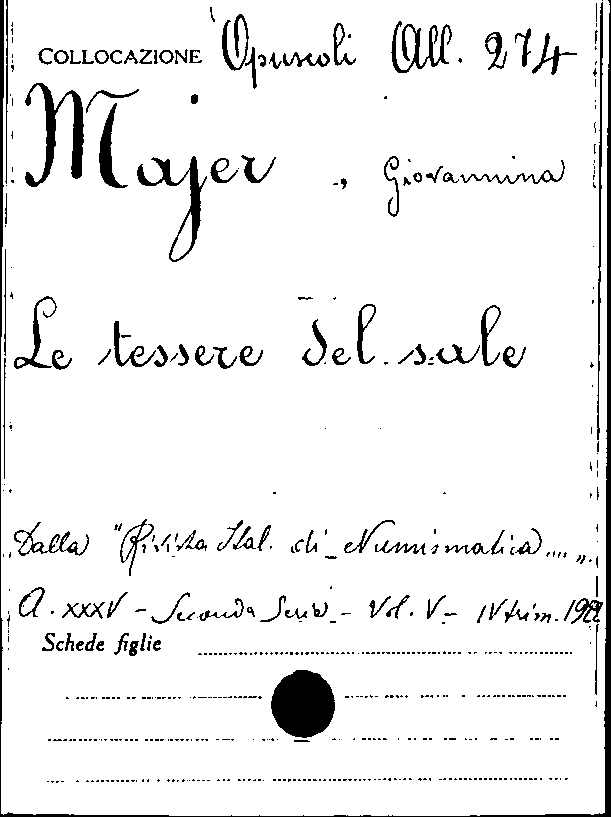 COLLOCAZIONE Opuscoli All. 274
Majer, Giovannina
Le tessere del sale
Dalla "Rivista Ital. di Numismatica....".
A. XXXV - Seconda Serie - Vol. V - IV trim. 1922
Schede figlie